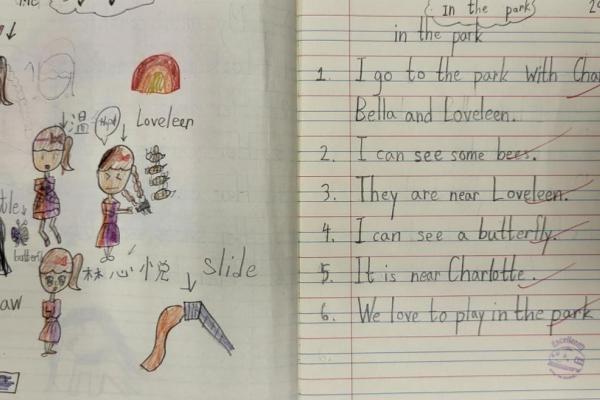 Loveleen
Help!
温
butterfly
林心悦
slide
in the park
in the park
1. I go to the park with
Bella and Loveleen.
2. I can see some bees.
3. They are near Loveleen.
4. I can see a butterfly.
5. It is near Charlotte.
6. We love to play in the park
Excellent